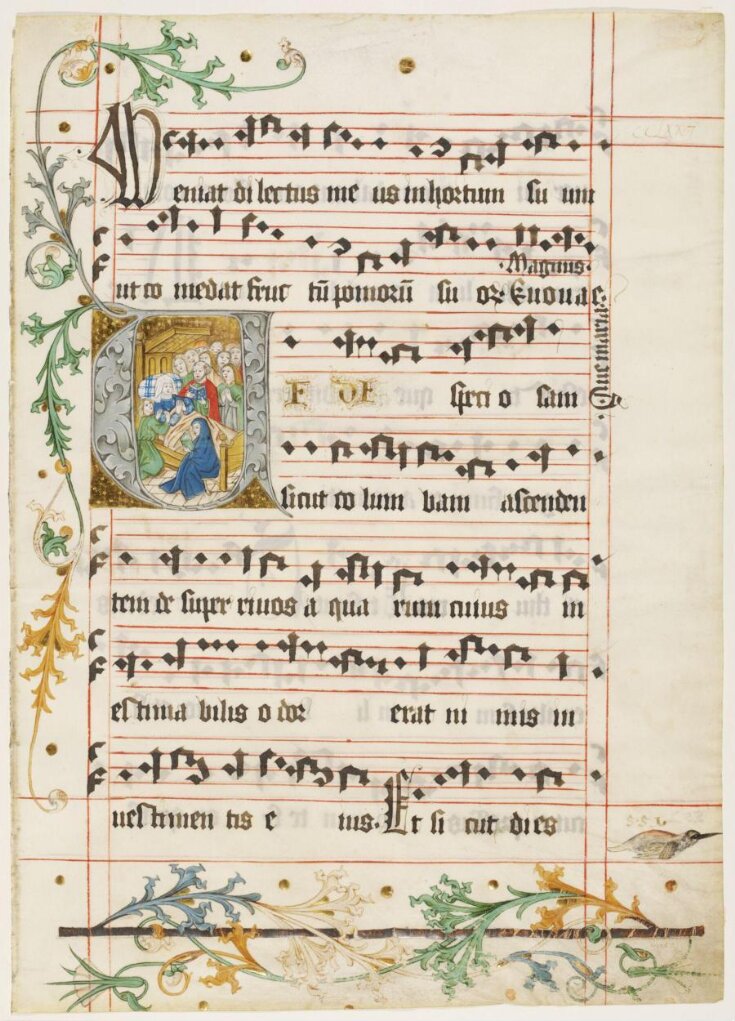 Veniat dilectus me us in hortum su um
ut co medat fruc tū pomorū su oꝝ Euouae
·Magnus·
Aue maria
VI DI speci o sam
sicut co lum bam ascenden
tem de super riuos a qua rum cuius in
estima bilis o dor erat ni mis in
uestimen tis e ius. Et si cut di es